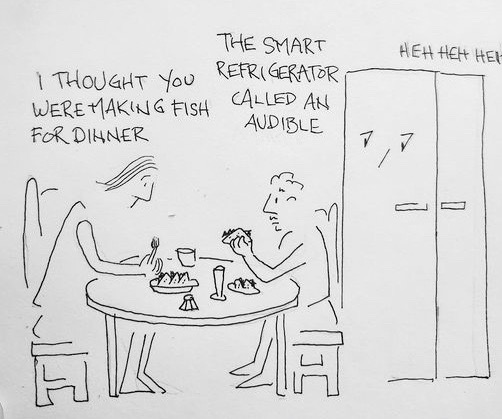 I THOUGHT YOU
WERE MAKING FISH
FOR DINNER
THE SMART
REFRIGERATOR
CALLED AN
AUDIBLE
HEH HEH HEH